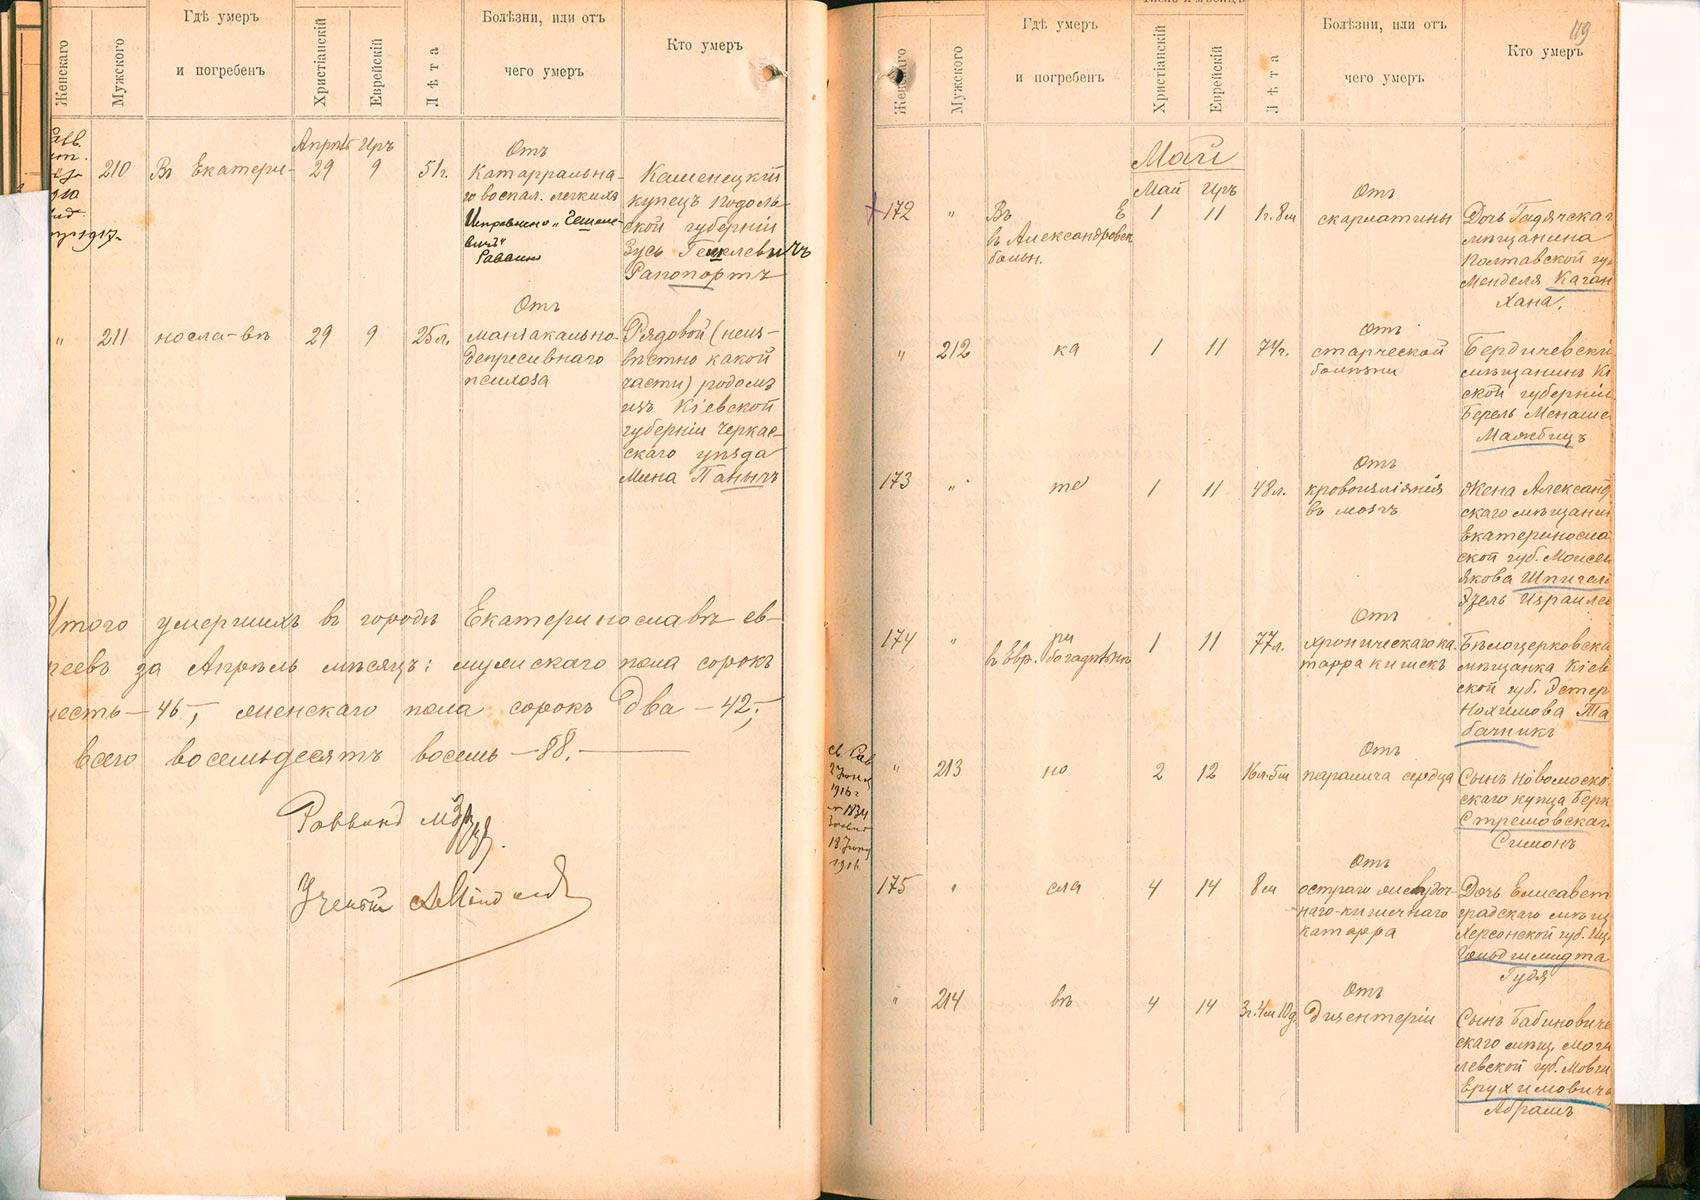 Женскаго
Мужского
Гдѣ умеръ
и погребенъ
Христіанскій
Еврейскій
Лѣта
Болѣзни, или отъ
чего умеръ
Кто умеръ
Апрѣль Иръ
210 Въ Екатери- 29 9 51г.
Отъ
Катарральна-
го воспал. легкихъ
Исправлено
Раввинъ
Каменецкій
купецъ Подоль-
ской губерніи
Зусь
Рапопортъ
1917г.
" 211 носла-въ 29 9 25л.
Отъ
маніакально-
депресивнаго
психоза
Рядовой (неиз-
вѣстно какой
части) родомъ
изъ Кіевской
губерніи Черкас-
скаго уѣзда
Мина Панычъ
Итого умершихъ въ городѣ Екатеринославѣ ев-
реевъ за Апрѣль мѣсяцъ: мужскаго пола сорокъ
шесть - 46 -, женскаго пола сорокъ два - 42 -,
всего восемьдесятъ восемь - 88. -
Раввинъ
Ученый
119
Женскаго
Мужского
Гдѣ умеръ
и погребенъ
Христіанскій
Еврейскій
Лѣта
Болѣзни, или отъ
чего умеръ
Кто умеръ
Май
Май Иръ
172 " Въ Е 1 11 1г. 8м
въ Александровск
больн.
Отъ
скарлатины
Дочь Гадячскаг
мѣщанина
Полтавской гу
Менделя Каган
Хана.
" 212 ка 1 11 74г.
Отъ
старческой
болѣзни
Бердичевскі
мѣщанинъ Кі
ской губерніи
Берель Менаше
Мажбицъ
173 " те 1 11 48л.
Отъ
кровоизліянія
въ мозгъ
Жена Александ
скаго мѣщани
Екатериносла
ской губ. Моисея
Якова Шпигел
Эзель Израиле
174 " ри 1 11 77л.
въ Евр. богадѣльн
Отъ
хроническаго ка-
тарра кишекъ
Бѣлоцерковска
мѣщанка Кіев
ской губ. Эстер
Нохимова Та
бачникъ
1916 г
18 Іюня
1916
" 213 но 2 12 16л. 5м
Отъ
паралича сердца
Сынъ Новомоско
скаго купца Берк
Стрешовскаг
Симонъ
175 " сла 4 14 8м
Отъ
остраго желудоч-
наго-кишечнаго
катарра
Дочь Елисавет
градскаго мѣщ
Херсонской губ. Иц.
Гольдшмидта
Гудя
" 214 въ 4 14 3г. 4м 10д.
Отъ
Дизентеріи
Сынъ Бабинович
скаго мѣщ. Моги
левской губ. Мовши
Ерухимовича
Абрамъ